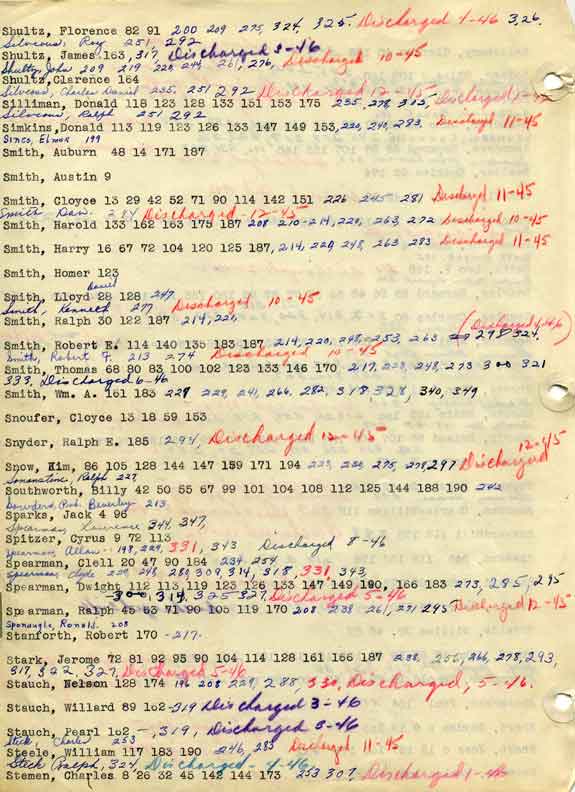 Shultz, Florence 82 91 200 209 275, 324, 325. Discharged 4-46 326.
Silveous, Roy 251, 292
Shultz, James 163, 317 Discharged 3-46
Shultz, John 209 219 228 244 261, 276. Discharged 10-45
Shultz, Clarence 164
Silveous, Charles Daniel 235, 251 292 Discharged 12-45
Silliman, Donald 118 123 128 133 151 153 175 235, 278, 302, Discharged
Silveous, Ralph 251 292
Simkins, Donald 113 119 123 126 133 147 149 153, 220, 240, 283. Discharged 11-45
Sines, Elmer 199
Smith, Auburn 48 14 171 187
Smith, Austin 9
Smith, Cloyce 13 29 42 52 71 90 114 142 151 226 245 281 Discharged 11-45
Smith Dan. 294 Discharged - 12-45
Smith, Harold 133 162 163 175 187 208 210-214, 220, 263, 272 Discharged 10-45
Smith, Harry 16 67 72 104 120 125 187, 214, 220, 248, 263 283 Discharged 11-45
Smith, Homer 123
Smith, Lloyd 28 128 247
Smith, Kenneth 277 Discharged, 10-45
Smith, Ralph 30 122 187 214, 220,
Smith, Robert E. 114 140 135 183 187 214, 220, 248, 253, 263 278 324. (Discharged
Smith, Robert F. 213 274 Discharged 10-45
Smith, Thomas 68 80 83 100 102 123 133 146 170 217, 228, 248, 273 300 321
333, Discharged 6-46
Smith, Wm. A. 151 183 229 229, 241, 266, 282, 318 328, 340, 349
Snoufer, Cloyce 13 18 59 153
Snyder, Ralph E. 185 294, Discharged 12-45
Snow, Kim, 86 105 128 144 147 159 171 194 223, 275, 278, 297 Discharged 12-45
Ralph 227
Southworth, Billy 42 50 55 67 99 101 104 108 112 125 144 188 190 242
Beverley 213
Sparks, Jack 4 96
Spearman, Lawrence 344, 347,
Spitzer, Cyrus 9 72 113
Spearman, Allan - 198, 229, 331, 343 Discharged 8-46
Spearman, Clell 20 47 90 184 234 254
Spearman, Clyde 229 248 280, 309, 314, 318, 331, 343,
Spearman, Dwight 112 113, 119 123 126 133 147 149 190, 166 183 273, 285, 295
300, 314, 325 327, Discharged 5-46
Spearman, Ralph 45 63 71 90 105 119 170 208 238 261, 271 295 Discharged 12-45
Sponaugle, Ronald. 208
Stanforth, Robert 170 - 217.
Stark, Jerome 72 81 92 95 90 104 114 128 161 166 187 238, 256, 266, 278, 293,
317, 322, 327, Discharged 5-46
Stauch, Nelson 128 174 196 208 229, 288, 330, Discharged, 5-46.
Stauch, Willard 89 1o2 -319 Discharged 3-46
Stauch, Pearl 1o2 -, 319, Discharged 3-46
Steck, Charles 253
Steele, William 117 183 190 246, 283 Discharged 11-45
Steck Ralph, 324, Discharged - 4-46,
Stemen, Charles 8 26 32 45 142 144 173 253 307, Discharged 1-46